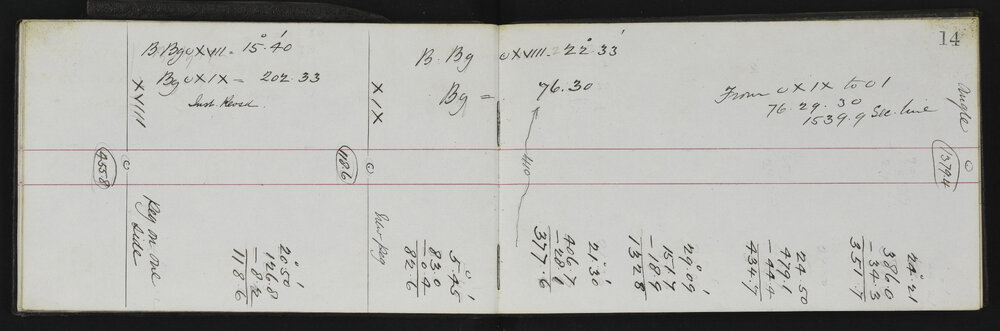 14
B. Bg ⊙ XVII = 15° 40'
Bg ⊙ XIX = 202.33
Inst. Revsd.
XVIII
4558
Peg on one
side
20° 50'
126.8
- 8.2
118.6
XIX
1186
New peg
B. Bg ⊙ XVIII = 22° 33'
Bg = 76.30
410
5° 45'
83.0
- 0.4
82.6
21° 30'
406.7
- 28.1
377.6
29° 09'
151.7
- 18.9
132.8
From ⊙ XIX to ⊙ 1
76. 29. 30
1539.9 Sec. line
24 50
479.1
- 44.4
434.7
24° 21
386.0
- 34.3
351.7
Angle
13794